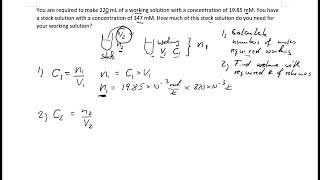 You are required to make 220 mL of a working solution with a concentration of 19.85 mM. You have
a stock solution with a concentration of 347 mM. How much of this stock solution do you need for
your working solution?
V₂
stock
working
V₁ C₁
n₁
1) Calculate
numbers of moles
required working
2) Find volume with
required # of
1) C₁ = n₁/V₁ n₁ = C₁ × V₁
n₁ = 19.85 × 10⁻³ mol/L × 220 × 10⁻³ L
2) C₂ = n₂/V₂